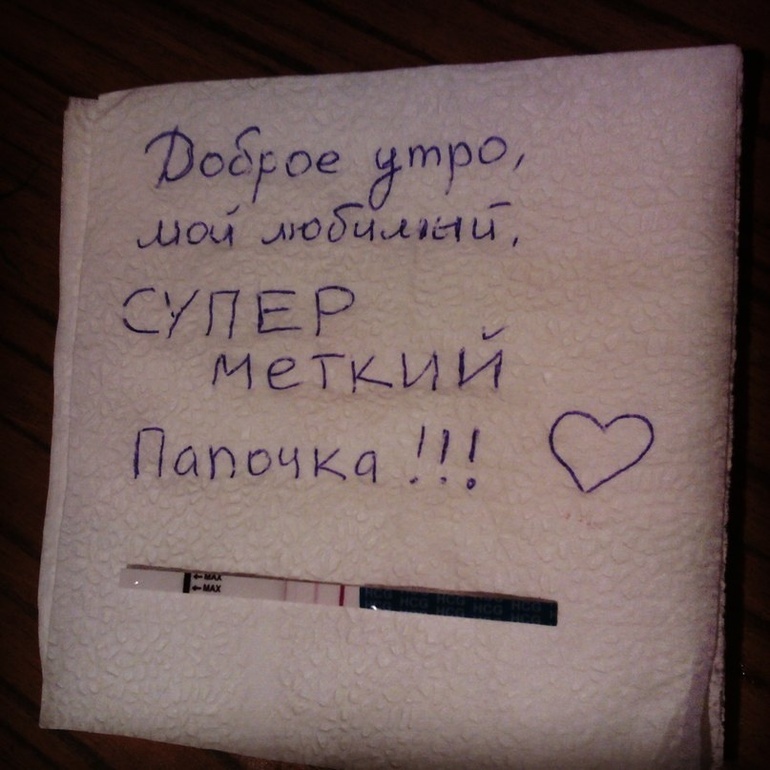 Доброе утро,
мой любимый,
СУПЕР
меткий
Папочка!!!
←MAX
←MAX
HCG HCG HCG HCG HCG
HCG HCG HCG